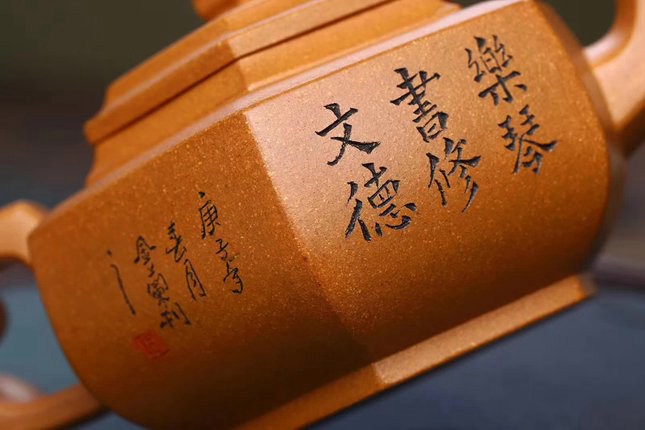 樂琴
書修
文德
庚子年
春月
金蘭刊